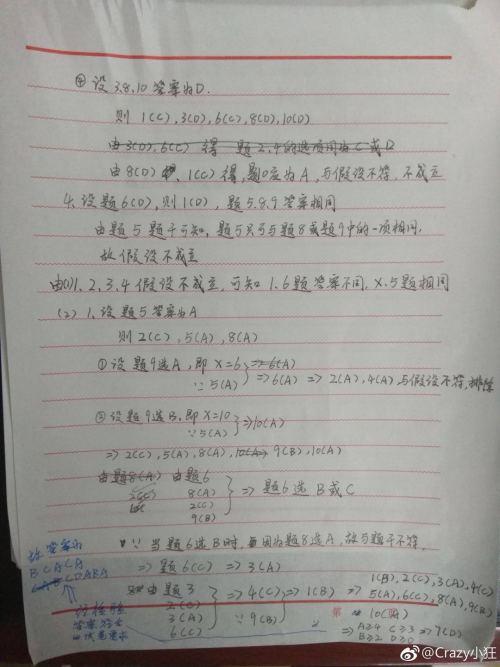 ④设3.8.10答案为D.
则 1(C),3(D),6(C),8(D),10(D)
由3(D),6(C) 得 题2,4的选项同为C或D
由8(D) 1(C)得,题10应为A,与假设不符,不成立
4.设题6(D),则1(D),题5.8.9答案相同
由题5题干可知,题5只可与题8或题9中的一项相同,
故假设不成立
由(1)1,2,3,4假设不成立,可知1.6题答案不同,X.5题相同
(2) 1.设题5答案为A
则2(C),5(A),8(A)
①设题9选A,即X=6 ⇒6(A)
∵5(A) ⇒6(A) ⇒2(A),4(A)与假设不符,排除
②设题9选B,即X=10
∵5(A) ⇒10(A)
⇒2(C),5(A),8(A),10(A)⇒9(B),10(A)
由题8(A) 由题6
2(C) 8(A)
2(C)
9(B) ⇒题6选B或C
∵当题6选B时,因为题8选A,故与题干不符.
⇒题6(C) ⇒3(A)
由题3
2(C)
3(A)
6(C) ⇒4(C)
∵9(B) ⇒1(B) ⇒
1(B),2(C),3(A),4(C)
5(A),6(C),8(A),9(B)
10(A)
⇒A≥4 C≥3 ⇒7(D)
B≥2 D≥0
故答案为
BCACA
CDABA
经检验
答案符合
第
@Crazy小狂